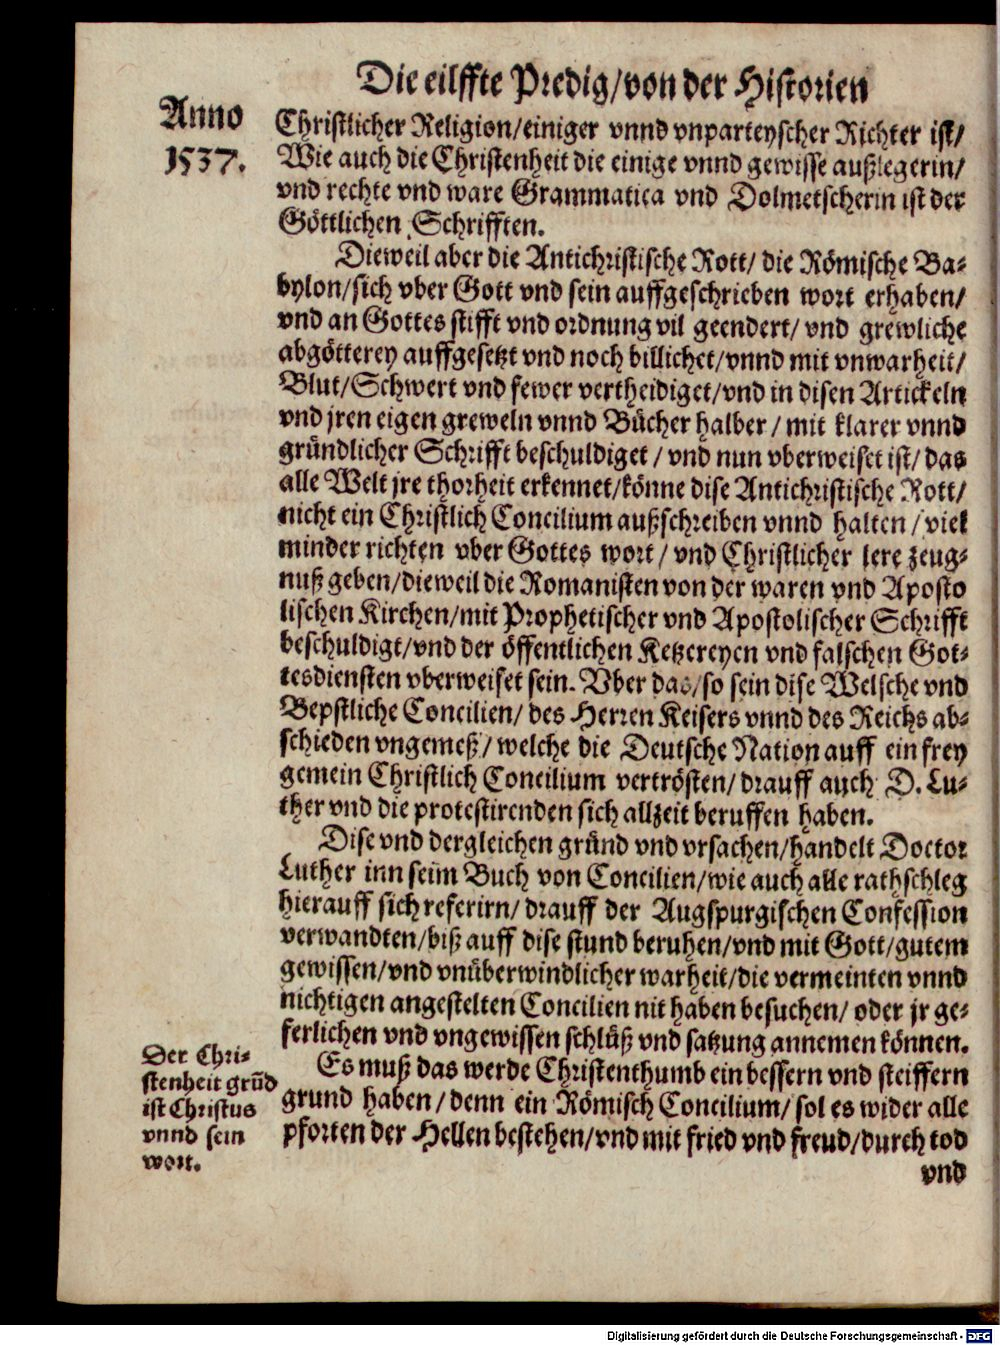 Die eilffte Predig/von der Historien
Anno
1537.
Christlicher Religion/einiger vnnd vnparteyscher Richter ist/
Wie auch die Christenheit die einige vnnd gewisse außlegerin/
vnd rechte vnd ware Grammatica vnd Dolmetscherin ist der
Göttlichen Schrifften.
Dieweil aber die Antichristische Rott/ die Römische Ba-
bylon/sich vber Gott vnd sein auffgeschrieben wort erhaben/
vnd an Gottes stifft vnd ordnung vil geendert/ vnd grewliche
abgötterey auffgesetzt vnd noch billichet/vnnd mit vnwarheit/
Blut/Schwert vnd fewer vertheidiget/vnd in disen Artickeln
vnd jren eigen greweln vnnd Bücher halber/ mit klarer vnnd
gründlicher Schrifft beschuldiget/ vnd nun vberweiset ist/ das
alle Welt jre thorheit erkennet/könne dise Antichristische Rott/
nicht ein Christlich Concilium außschreiben vnnd halten/ viel
minder richten vber Gottes wort/ vnd Christlicher lere zeug-
nuß geben/dieweil die Romanisten von der waren vnd Aposto
lischen Kirchen/mit Prophetischer vnd Apostolischer Schrifft
beschuldigt/vnd der öffentlichen Ketzereyen vnd falschen Got-
tesdiensten vberweiset sein. Vber das/so sein dise Welsche vnd
Bepstliche Concilien/ des Herren Keisers vnnd des Reichs ab-
schieden vngemeß/ welche die Deutsche Nation auff ein frey
gemein Christlich Concilium vertrösten/ drauff auch D. Lu-
ther vnd die protestirenden sich allzeit beruffen haben.
Dise vnd dergleichen gründ vnd vrsachen/handelt Doctor
Luther inn seim Buch von Concilien/wie auch alle rathschleg
hierauff sich referirn/ drauff der Augspurgischen Confession
verwandten/biß auff dise stund beruhen/vnd mit Gott/gutem
gewissen/vnd vnüberwindlicher warheit/die vermeinten vnnd
nichtigen angestelten Concilien nit haben besuchen/ oder jr ge-
ferlichen vnd vngewissen schlüß vnd satzung annemen können.
Es muß das werde Christenthumb ein bessern vnd steiffern
grund haben/ denn ein Römisch Concilium/ sol es wider alle
pforten der Hellen bestehen/vnd mit fried vnd freud/durch tod
vnd
Der Chri-
stenheit grūd
ist Christus
vnnd sein
wort.
Digitalisierung gefördert durch die Deutsche Forschungsgemeinschaft - DFG